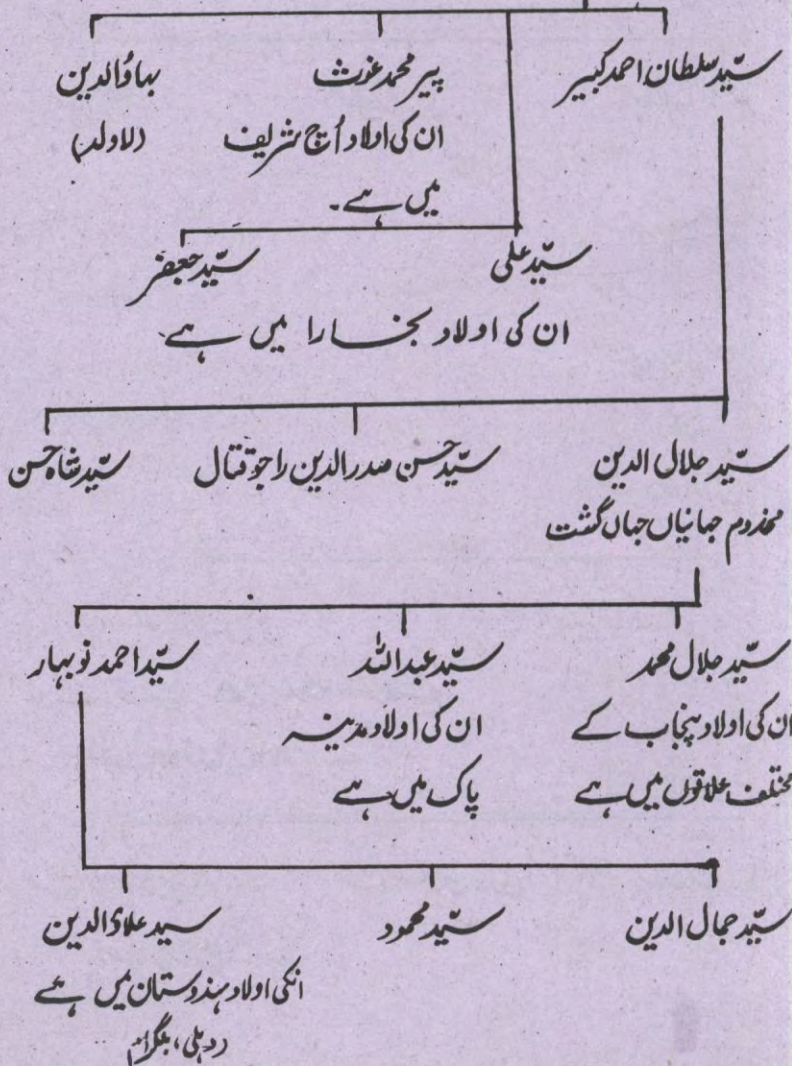 سیّد سلطان احمد کبیر
پیر محمد غوث
ان کی اولاد اُچ شریف
میں ہے۔
بہاؤالدین
(لاولد)
سیّد علی
سیّد جعفر
ان کی اولاد بخارا میں ہے
سیّد جلال الدین
مخدوم جہانیاں جہاں گشت
سیّد حسن صدرالدین راجو قتال
سیّد شاہ حسن
سیّد جلال محمد
ان کی اولاد پنجاب کے
مختلف علاقوں میں ہے
سیّد عبداللہ
ان کی اولاد مدینہ
پاک میں ہے
سیّد احمد نوبہار
سیّد جمال الدین
سیّد محمود
سید علاؤالدین
انکی اولاد ہندوستان میں ہے
(دہلی، بلگرام